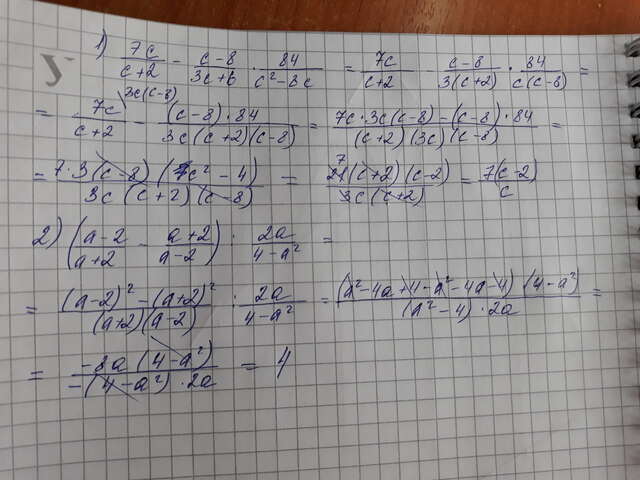 1) 7c/(c+2) - (c-8)/(3c+6) · 84/(c²-8c) = 7c/(c+2) - (c-8)/(3(c+2)) · 84/(c(c-8)) =
= 7c^(3c(c-8))/(c+2) - ((c-8)·84)/(3c(c+2)(c-8)) = (7c·3c(c-8)-(c-8)·84)/((c+2)(3c)(c-8)) =
= (7·3(c-8)(c²-4))/(3c(c+2)(c-8)) = (21(c+2)(c-2))/(3c(c+2)) = 7(c-2)/c
2) ((a-2)/(a+2) - (a+2)/(a-2)) : 2a/(4-a²) =
= ((a-2)²-(a+2)²)/((a+2)(a-2)) : 2a/(4-a²) = ((a²-4a+4-a²-4a-4)·(4-a²))/((a²-4)·2a) =
= (-8a(4-a²))/(-(4-a²)·2a) = 4